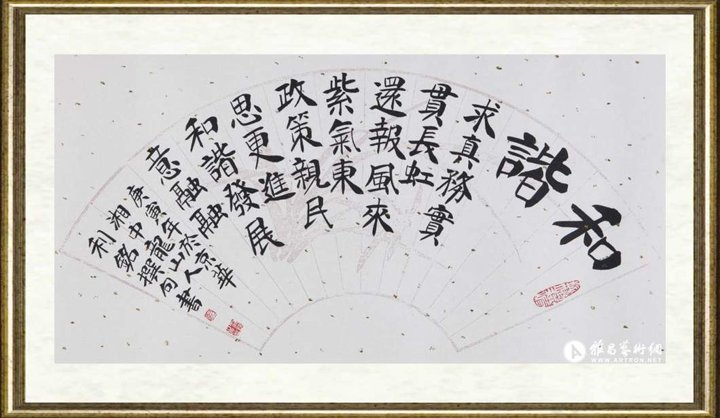 和諧
求真務實
貫長虹
還報風來
紫氣東
政策親民
思更進
和諧發展
意融融
庚寅年於京華
湘中龍山人
利銘撰句書
雅昌藝術網
WWW.ARTRON.NET